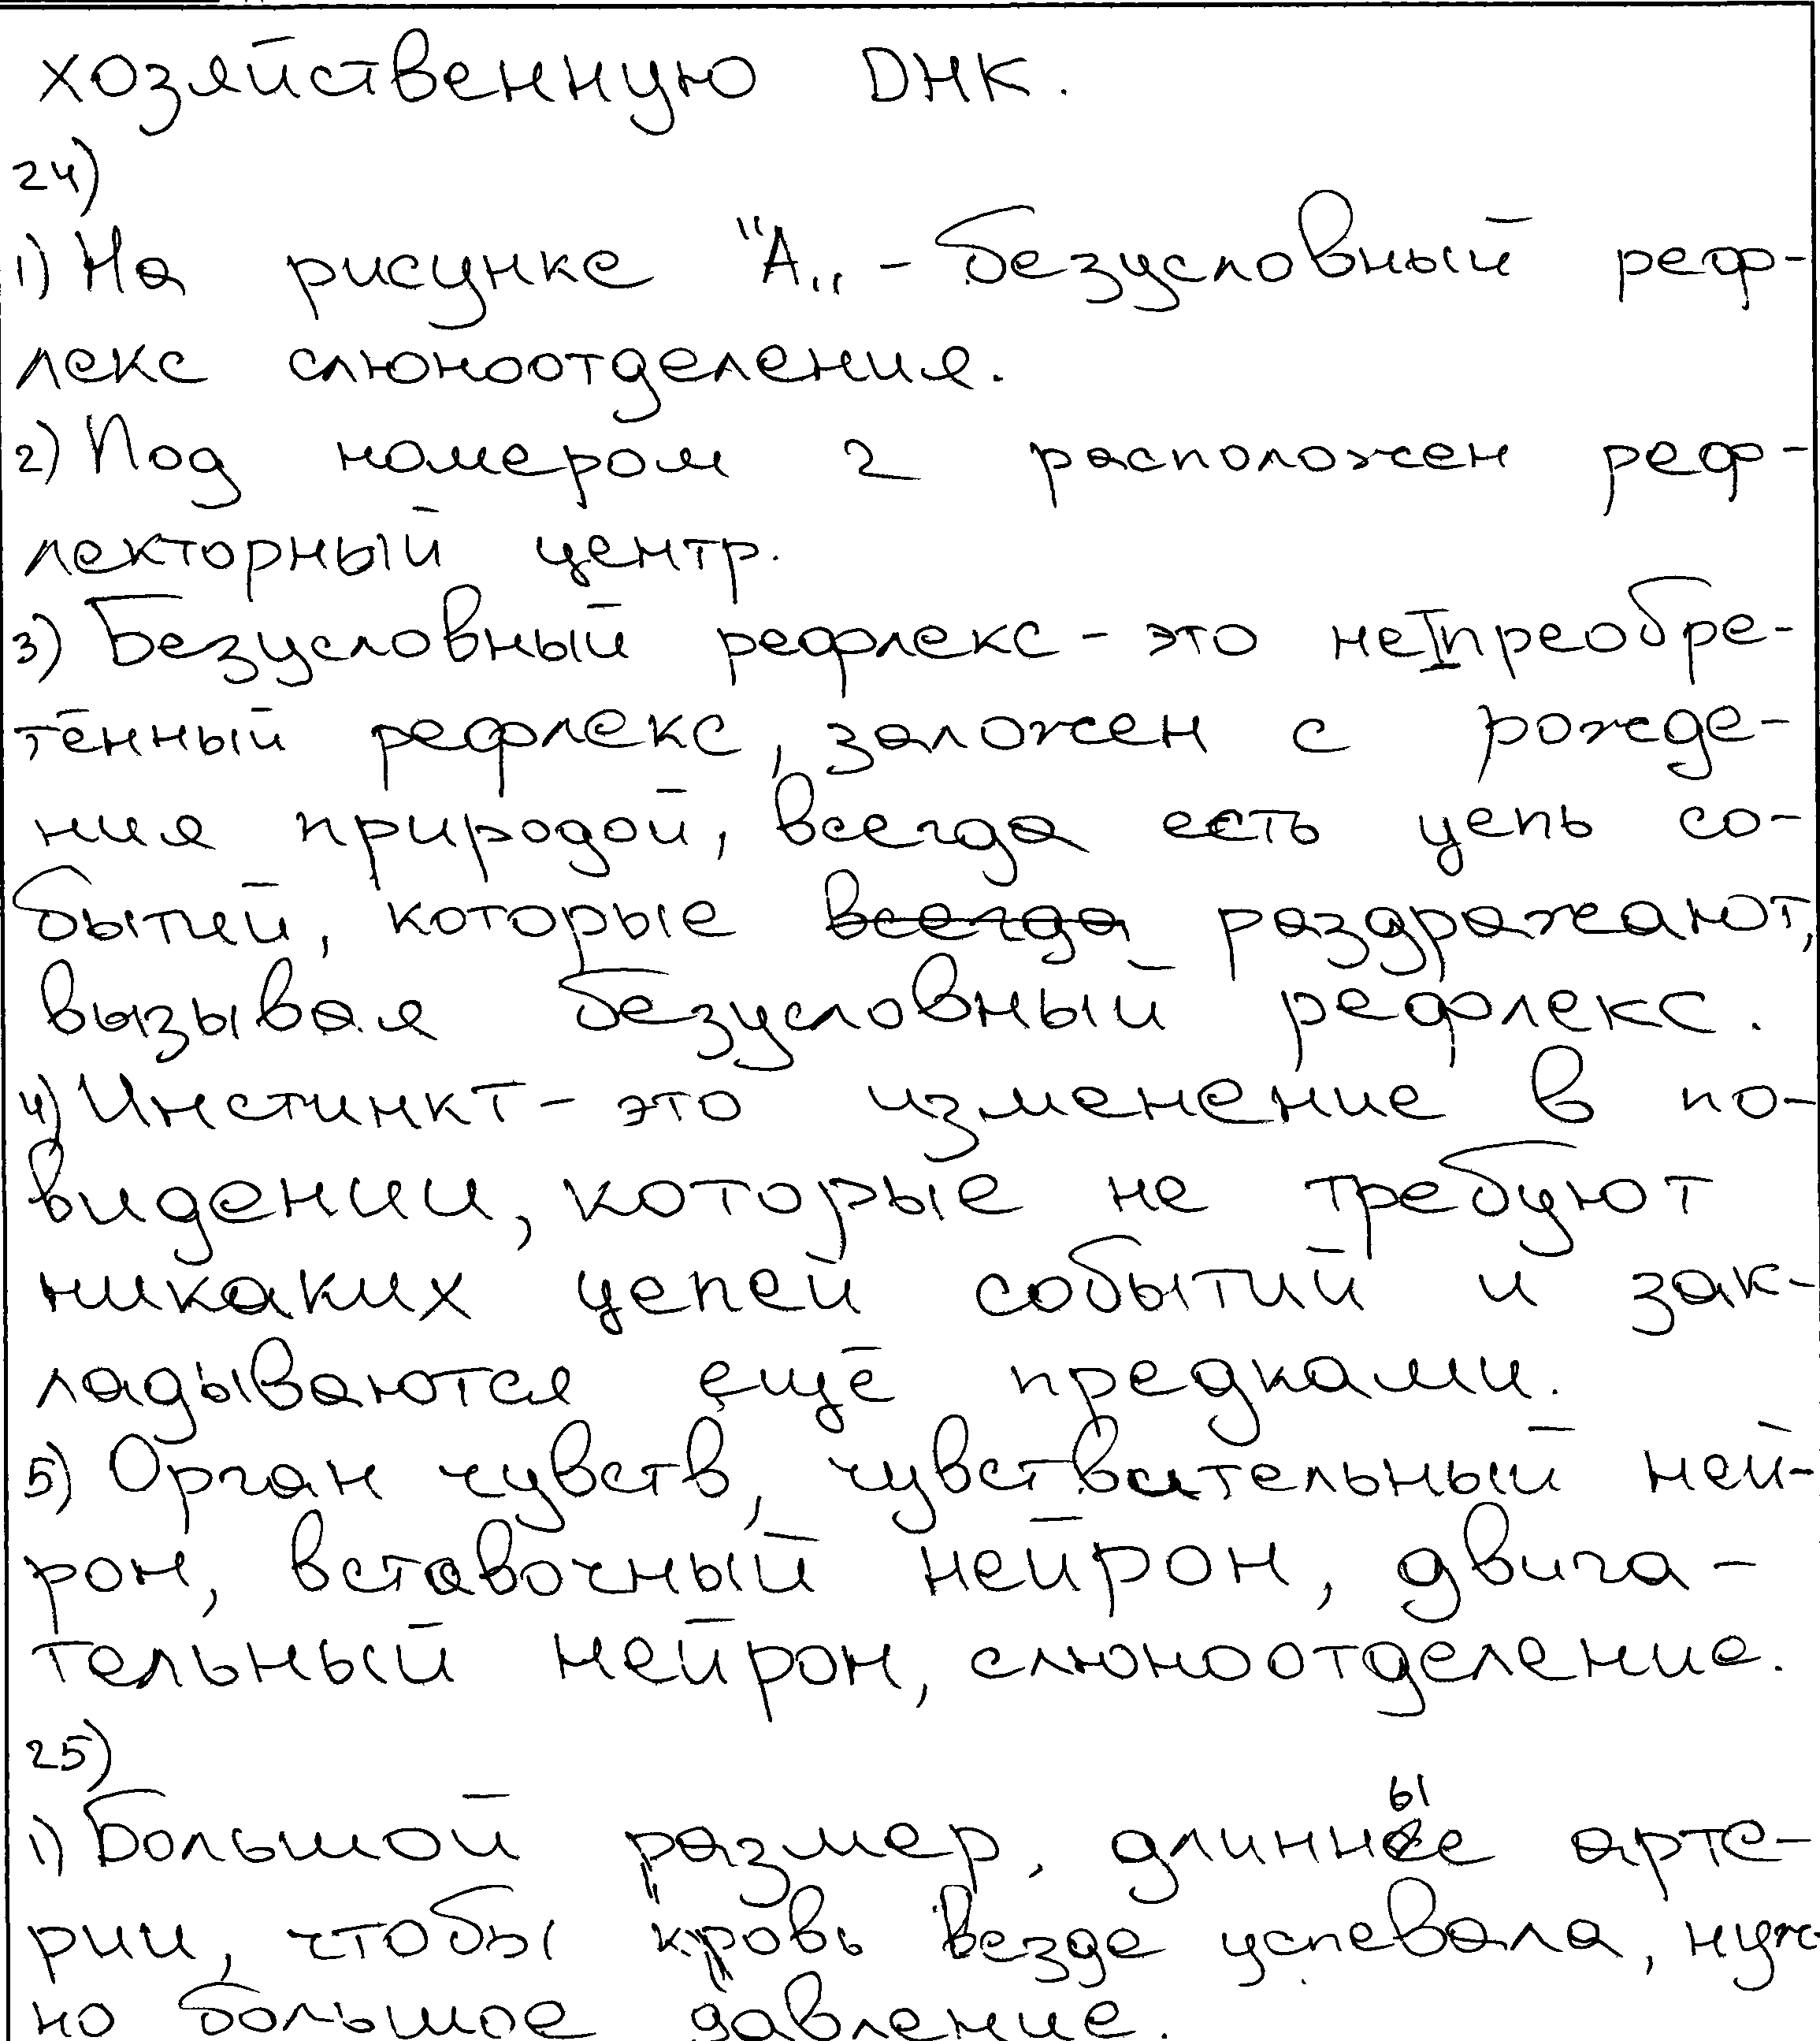 хозяйственную ДНК.
24)
1) На рисунке "А„ - безусловный реф-
лекс слюноотделения.
2) Под номером 2 расположен реф-
лекторный центр.
3) Безусловный рефлекс - это не преобре-
тённый рефлекс, заложен с рожде-
ния природой, всегда есть цепь со-
бытий, которые всегда раздражают,
вызывая безусловный рефлекс.
4) Инстинкт - это изменение в по-
видении, которые не требуют
никаких цепей событий и зак-
ладываются ещё предками.
5) Орган чувств, чувствительный ней-
рон, вставочный нейрон, двига-
тельный нейрон, слюноотделение.
25)
1) Большой размер, длинные арте-
рии, чтобы кровь везде успевала, нуж-
но большое давление.